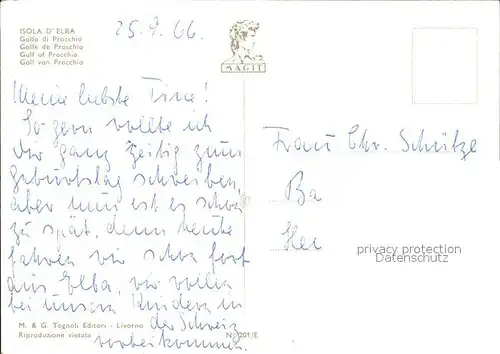 ISOLA D'ELBA
Golfo di Procchio
Golfe de Procchio
Gulf of Procchio
Golf von Procchio
25.9.66.
MAGIT
Meine liebste Tine!
So gern wollte ich
dir ganz zeitig zum
Geburtstag schreiben,
aber nun ist es schon
zu spät, denn heute
fahren wir schon fort
aus Elba, wir wollen
bei unsern Kindern in
der Schweiz
vorbeikommen.
Frau Chr. Schütze
Ba
Hei
privacy protection
Datenschutz
M. & G. Tognoli Editori - Livorno
Riproduzione vietata
N. 201/E